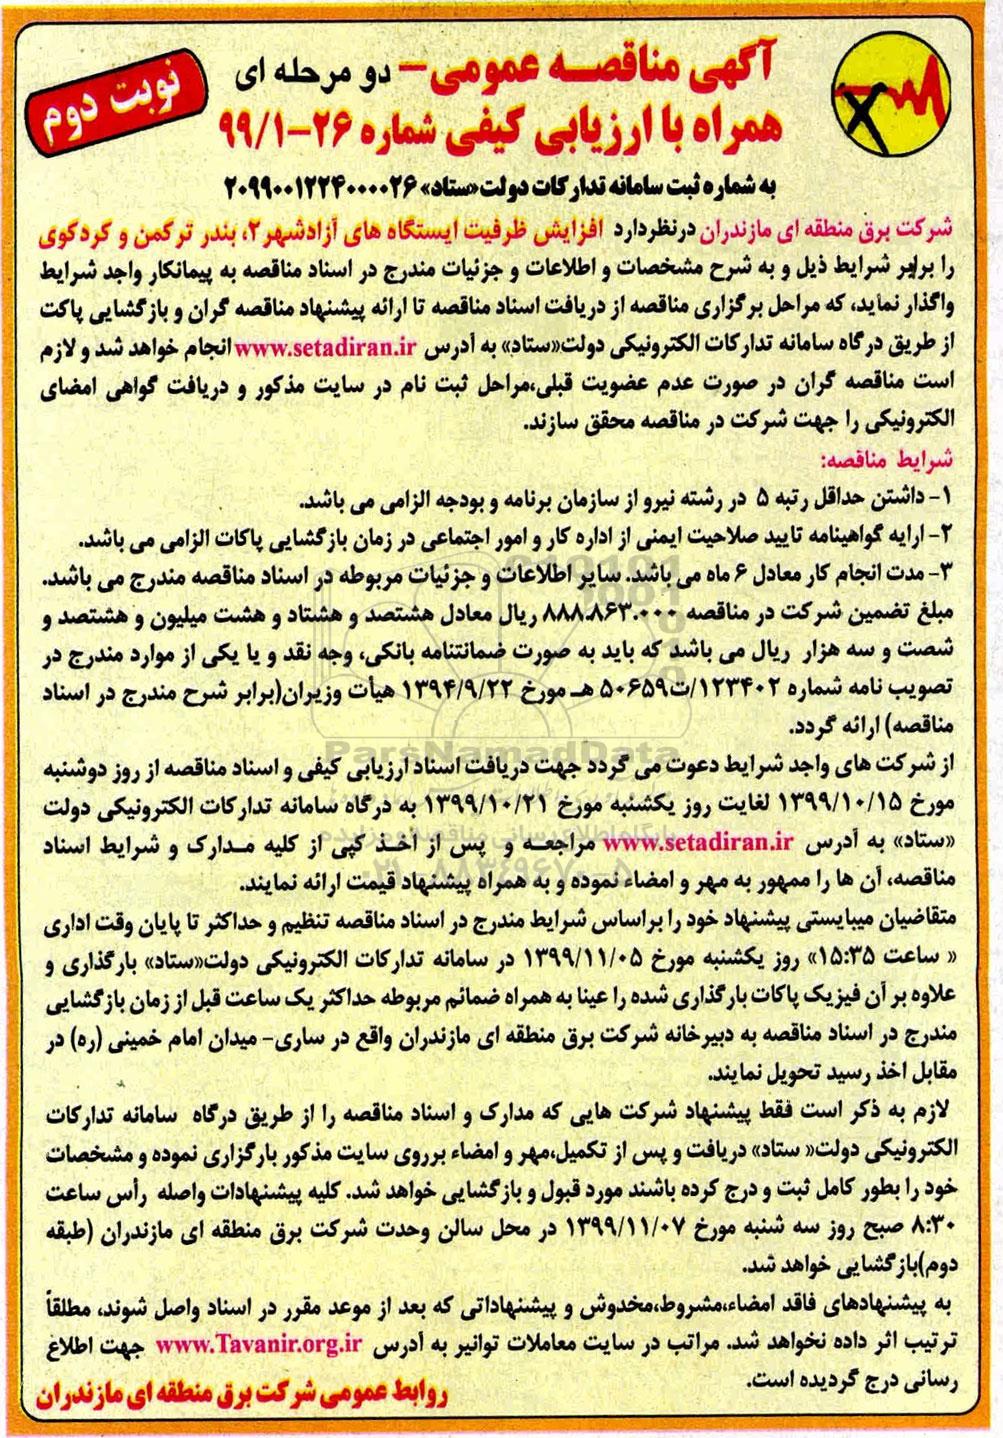 آگهی مناقصه عمومی- دو مرحله ای
همراه با ارزیابی کیفی شماره ۲۶-۹۹/۱
نوبت دوم
به شماره ثبت سامانه تدارکات دولت«ستاد» ۲۰۹۹۰۰۱۲۲۴۰۰۰۰۲۶
شرکت برق منطقه ای مازندران درنظردارد افزایش ظرفیت ایستگاه های آزادشهر۲، بندر ترکمن و کردکوی
را برابر شرایط ذیل و به شرح مشخصات و اطلاعات و جزئیات مندرج در اسناد مناقصه به پیمانکار واجد شرایط
واگذار نماید، که مراحل برگزاری مناقصه از دریافت اسناد مناقصه تا ارائه پیشنهاد مناقصه گران و بازگشایی پاکت
از طریق درگاه سامانه تدارکات الکترونیکی دولت«ستاد» به آدرس www.setadiran.ir انجام خواهد شد و لازم
است مناقصه گران در صورت عدم عضویت قبلی،مراحل ثبت نام در سایت مذکور و دریافت گواهی امضای
الکترونیکی را جهت شرکت در مناقصه محقق سازند.
شرایط مناقصه:
۱- داشتن حداقل رتبه ۵ در رشته نیرو از سازمان برنامه و بودجه الزامی می باشد.
۲- ارایه گواهینامه تایید صلاحیت ایمنی از اداره کار و امور اجتماعی در زمان بازگشایی پاکات الزامی می باشد.
۳- مدت انجام کار معادل ۶ ماه می باشد. سایر اطلاعات و جزئیات مربوطه در اسناد مناقصه مندرج می باشد.
مبلغ تضمین شرکت در مناقصه ۸۸۸.۸۶۳.۰۰۰ ریال معادل هشتصد و هشتاد و هشت میلیون و هشتصد و
شصت و سه هزار ریال می باشد که باید به صورت ضمانتنامه بانکی، وجه نقد و یا یکی از موارد مندرج در
تصویب نامه شماره ۱۲۳۴۰۲/ت۵۰۶۵۹ هـ مورخ ۱۳۹۴/۹/۲۲ هیأت وزیران(برابر شرح مندرج در اسناد
مناقصه) ارائه گردد.
از شرکت های واجد شرایط دعوت می گردد جهت دریافت اسناد ارزیابی کیفی و اسناد مناقصه از روز دوشنبه
مورخ ۱۳۹۹/۱۰/۱۵ لغایت روز یکشنبه مورخ ۱۳۹۹/۱۰/۲۱ به درگاه سامانه تدارکات الکترونیکی دولت
«ستاد» به آدرس www.setadiran.ir مراجعه و پس از اخذ کپی از کلیه مدارک و شرایط اسناد
مناقصه، آن ها را ممهور به مهر و امضاء نموده و به همراه پیشنهاد قیمت ارائه نمایند.
متقاضیان میبایستی پیشنهاد خود را براساس شرایط مندرج در اسناد مناقصه تنظیم و حداکثر تا پایان وقت اداری
« ساعت ۱۵:۳۵» روز یکشنبه مورخ ۱۳۹۹/۱۱/۰۵ در سامانه تدارکات الکترونیکی دولت«ستاد» بارگذاری و
علاوه بر آن فیزیک پاکات بارگذاری شده را عینا به همراه ضمائم مربوطه حداکثر یک ساعت قبل از زمان بازگشایی
مندرج در اسناد مناقصه به دبیرخانه شرکت برق منطقه ای مازندران واقع در ساری- میدان امام خمینی (ره) در
مقابل اخذ رسید تحویل نمایند.
لازم به ذکر است فقط پیشنهاد شرکت هایی که مدارک و اسناد مناقصه را از طریق درگاه سامانه تدارکات
الکترونیکی دولت« ستاد» دریافت و پس از تکمیل،مهر و امضاء برروی سایت مذکور بارگزاری نموده و مشخصات
خود را بطور کامل ثبت و درج کرده باشند مورد قبول و بازگشایی خواهد شد. کلیه پیشنهادات واصله رأس ساعت
۸:۳۰ صبح روز سه شنبه مورخ ۱۳۹۹/۱۱/۰۷ در محل سالن وحدت شرکت برق منطقه ای مازندران (طبقه
دوم)بازگشایی خواهد شد.
به پیشنهادهای فاقد امضاء،مشروط،مخدوش و پیشنهاداتی که بعد از موعد مقرر در اسناد واصل شوند، مطلقاً
ترتیب اثر داده نخواهد شد. مراتب در سایت معاملات توانیر به آدرس www.Tavanir.org.ir جهت اطلاع
رسانی درج گردیده است.
روابط عمومی شرکت برق منطقه ای مازندران
ParsNamadData
پایگاه اطلاع رسانی مناقصه و مزایده
۰۲۱-۸۸۳۴۹۶۷۰-۵